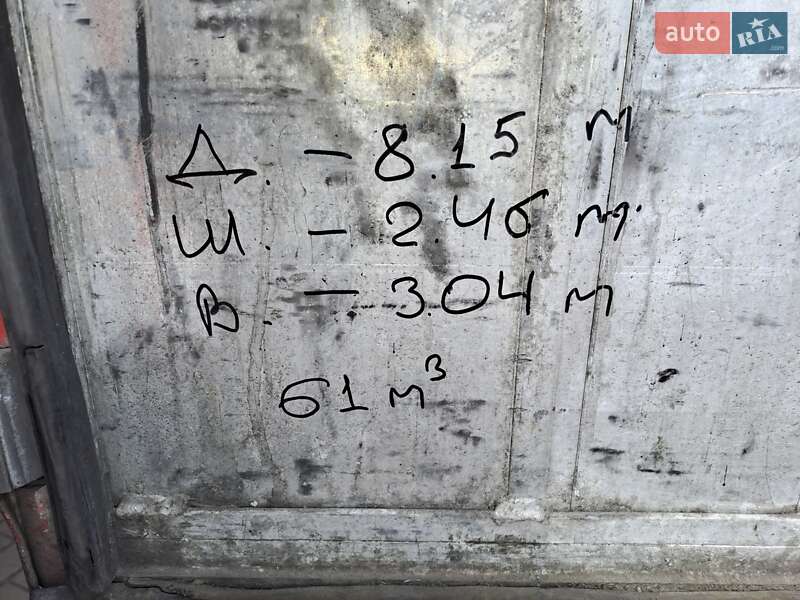 auto RIA .com
Д. – 8.15 м
Ш. – 2.46 м.
В. – 3.04 м
61 м³